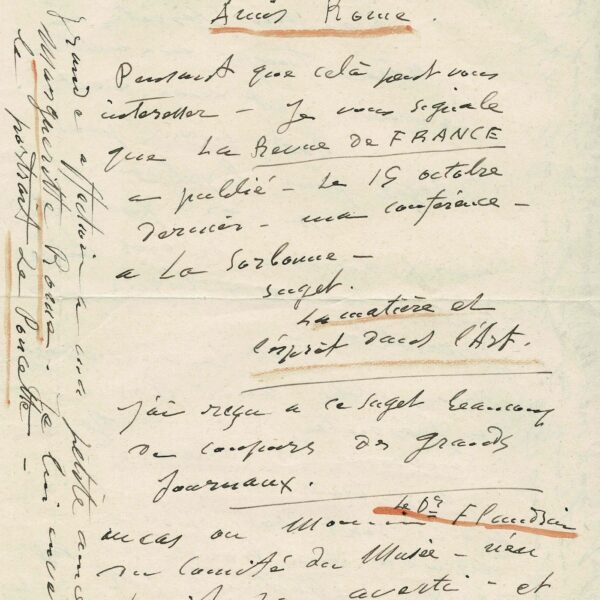 Amis Rome.
Pensant que celà peut vous
interesser – Je vous signale
que La Revue de FRANCE
a publié – Le 15 octobre
dernier – ma conférence –
a La Sorbonne –
suget.
La matière et
l'esprit dans l'Art.
j'ai reçu a ce suget beaucoup
de coupures des grands
Journaux.
Le Dr Flandrin
au cas ou Monsieur
du Comité du Musée – rien
averti – et
grande affection a ma petite amie
Marguerite Rome. Je lui
le portrait de Poucette –